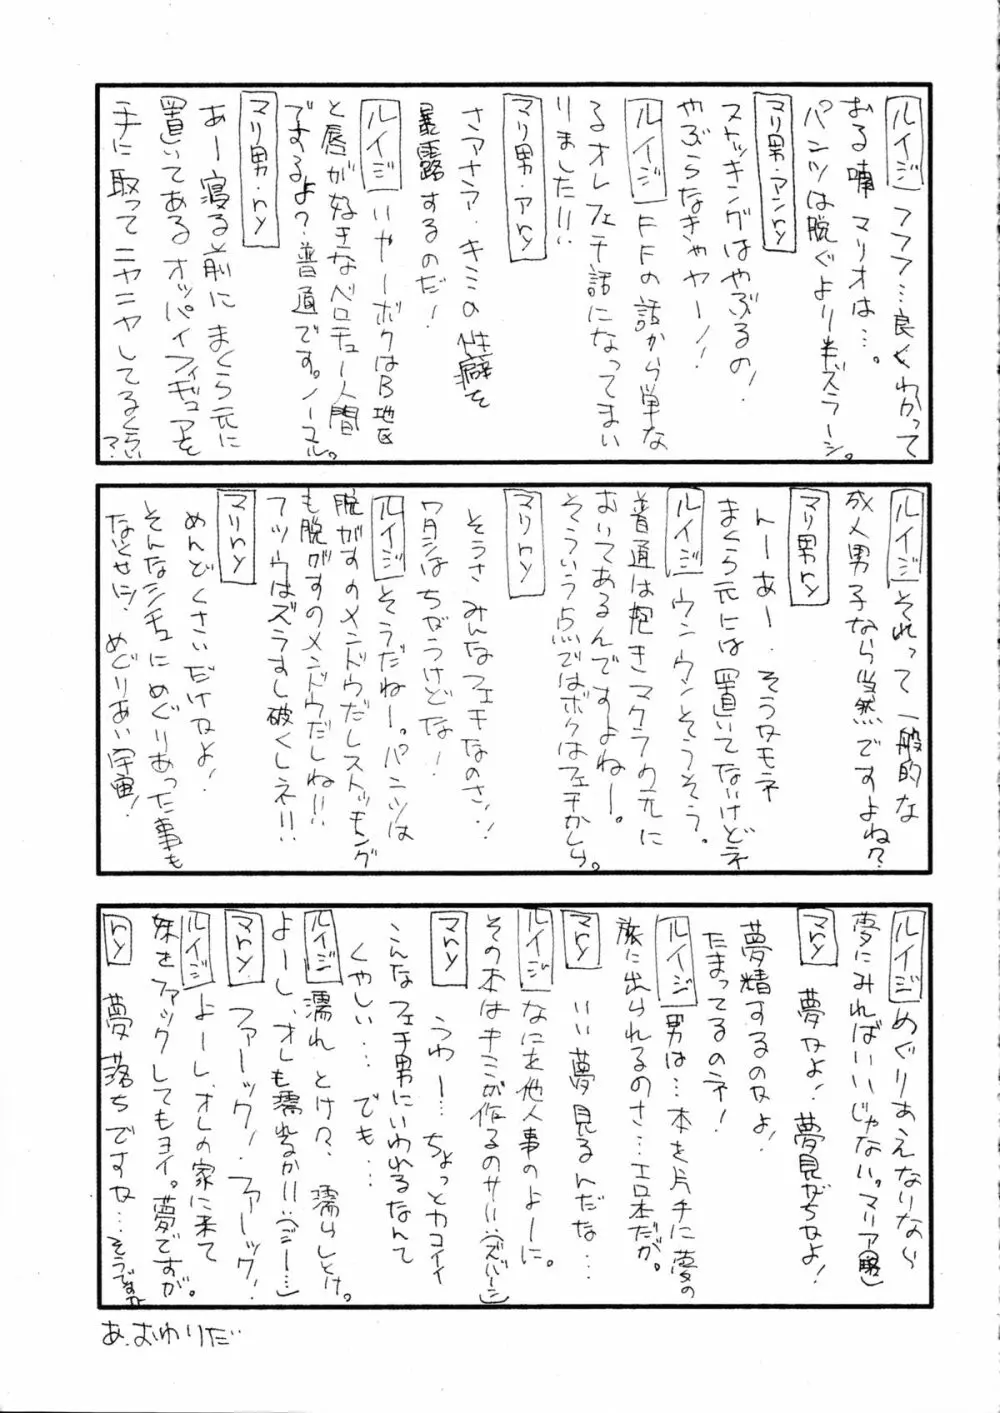 ルイジ フフフ…良くわかって
おる喃 マリオは…。
パンツは脱ぐより半ズラージ。
マリ男・アンry
ストッキングはやぶるの！
やぶらなきゃヤー！！
ルイジ FFの話から単な
るオレフェチ話になってまい
りました!!!
マリ男・アry
さァさァ・キミの性癖を
暴露するのだ！
ルイジ いやーボクはB地区
と唇が好きなベロチュー人間
ですするよ？普通です。ノーマル。
マリ男・ry
あー寝る前にまくら元に
置いてあるオッパイフィギュアを
手に取ってニヤニヤしてるくらい
？
ルイジ それって一般的な
成人男子なら当然ですよね？
マリ男ry
んーあー・そうなモネ
まくら元には置いてないけどネ
ルイジ ウンウンそうそう。
普通は抱きマクラの元に
おいてあるんですよねー。
そういう点ではボクはフェチかしら。
マリry
そうさ みんなフェチなのさ！！
ワタシはちがうけどな！
ルイジ そうだねー。パンツは
脱がすのメンドウだしストッキング
も脱がすのメンドウだしね!!
フツウはズラすし破くしネ!!
マリry
めんどくさいだけかよ！
そんなシチュにめぐりあった事も
ないくせに！めぐりあい宇宙！
ルイジ めぐりあえないなら
夢にみればいいじゃない。マリア(略)
マry
夢かよ！夢見がちかよ！
夢精するのかよ！
たまってるのネ！
ルイジ 男は…本を片手に夢の
旅に出られるのさ…エロ本だが。
マry
いい夢見るんだな…
ルイジ なにを他人事のよーに。
その本はキミが作るのサ!!(ズバーン)
マry
うわー…ちょっとカコイイ
こんなフェチ男にいわれるなんて
くやしい…でも…
ルイジ 濡れとけ？？濡らしとけ。
よーし、オレも濡れるか!!(ジジー…)
マry ファーック！ファーック！
ルイジ よーし、オレの家に来て
妹をファックしてもヨイ。夢ですが。
ry 夢落ちですか…そうですか
あ、おわりだ…